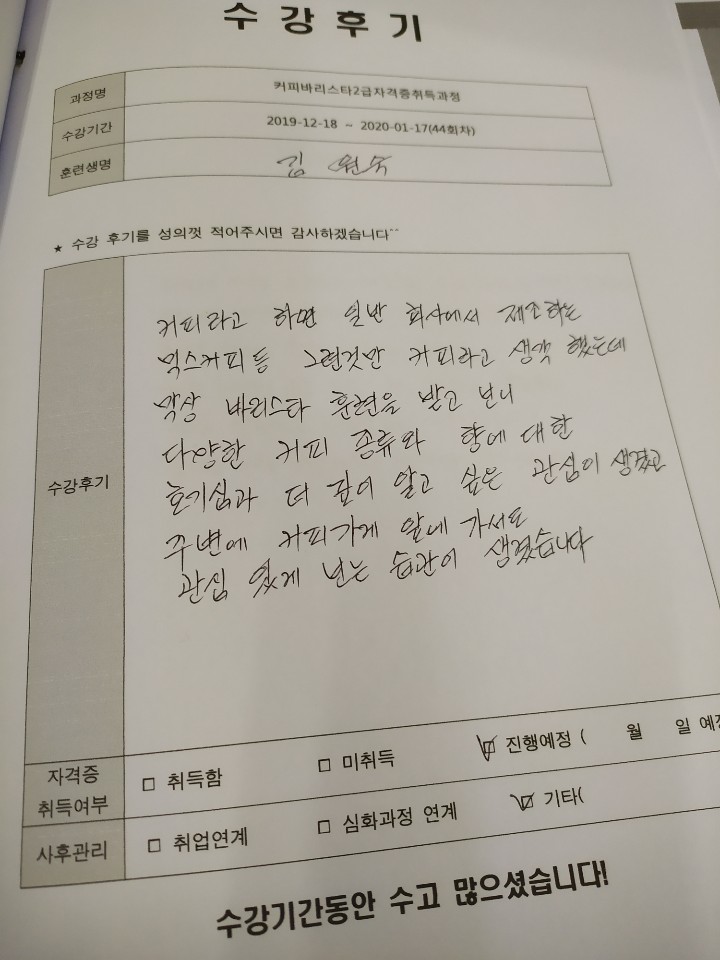 수강후기
과정명 커피바리스타2급자격증취득과정
수강기간 2019-12-18 ~ 2020-01-17(44회차)
훈련생명 김원숙
★ 수강 후기를 성의껏 적어주시면 감사하겠습니다^^
수강후기
커피라고 하면 일반 회사에서 제조하는
믹스커피등 그런것만 커피라고 생각 했는데
막상 바리스타 훈련을 받고 보니
다양한 커피 종류와 향에 대한
호기심과 더 깊이 알고 싶은 관심이 생겼고
주변에 커피가게 앞에 가서도
관심 있게 보는 습관이 생겼습니다
자격증 취득여부 □ 취득함 □ 미취득 ☑ 진행예정 ( 월 일 예정
사후관리 □ 취업연계 □ 심화과정 연계 ☑ 기타(
수강기간동안 수고 많으셨습니다!